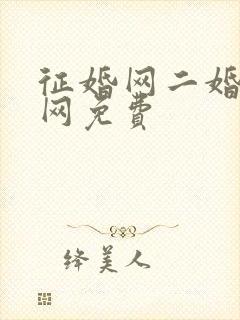 征婚网二婚
网免费
绛美人